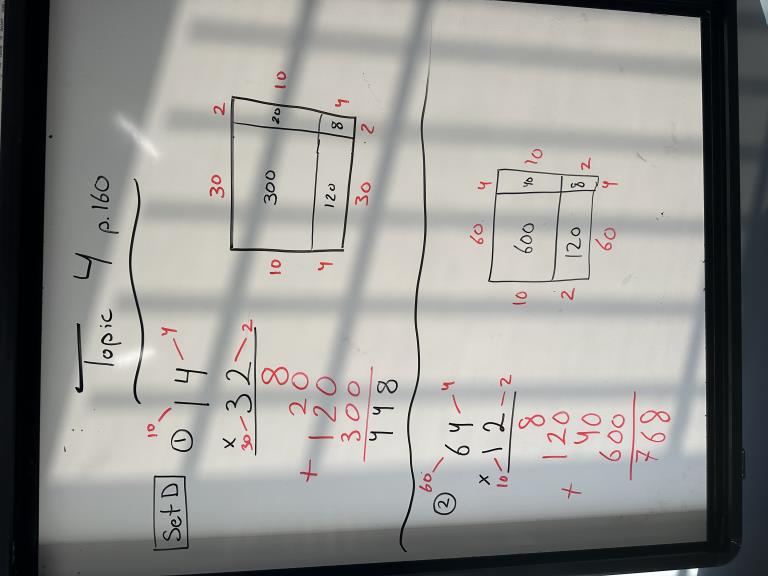 Topic 4 p.160
Set D
① 10 14 4
x 30 32 2
8
20
+ 120
300
448
30 2
10 300 20 10
4 120 8 4
30 2
② 60 64 4
x 10 12 2
8
+ 120
40
600
768
60 4
10 600 40 10
2 120 8 2
60 4